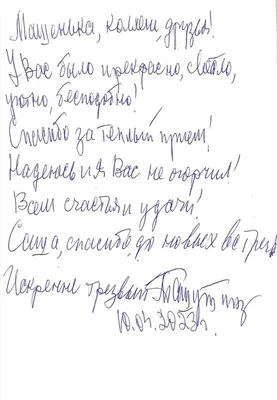 Машенька, коллеги, друзья!
У Вас было прекрасно, светло,
уютно, бесподобно!
Спасибо за теплый прием!
Надеюсь и я Вас не огорчил!
Всем счастья и удачи!
Саша, спасибо, до новых встреч!
Искренне трезвый
10.04.2023г.